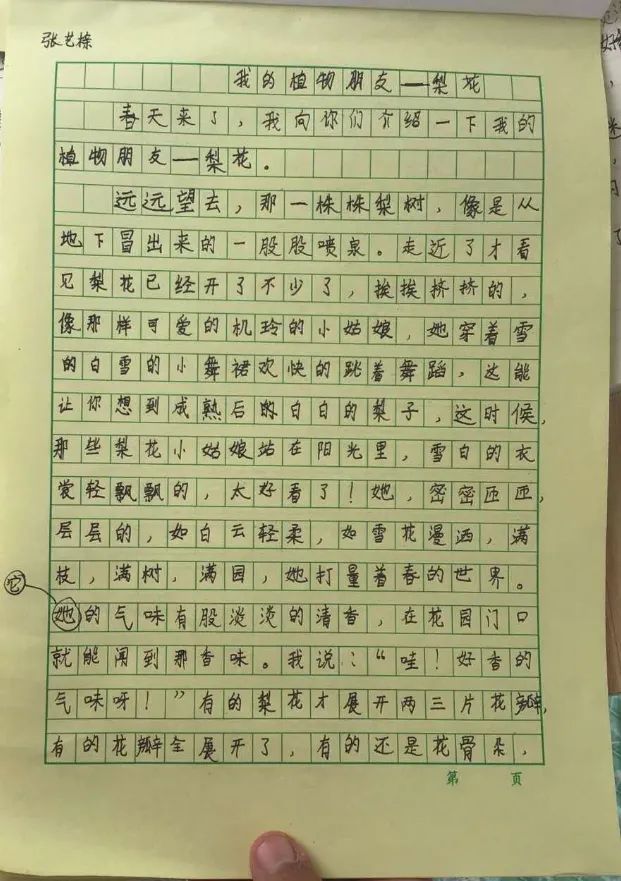 张艺榛
我的植物朋友——梨花
春天来了，我向你们介绍一下我的
植物朋友——梨花。
远远望去，那一株株梨树，像是从
地下冒出来的一股股喷泉。走近了才看
见梨花已经开了不少了，挨挨挤挤的，
像那样可爱的机玲的小姑娘，她穿着雪
的白雪的小舞裙欢快的跳着舞蹈，这能
让你想到成熟后的白白的梨子，这时候，
那些梨花小姑娘站在阳光里，雪白的衣
裳轻飘飘的，太好看了！她，密密匝匝，
层层的，如白云轻柔，如雪花漫洒，满
枝，满树，满园，她打量着春的世界。
它
她的气味有股淡淡的清香，在花园门口
就能闻到那香味。我说：“哇！好香的
气味呀！”有的梨花才展开两三片花瓣，
有的花瓣全展开了，有的还是花骨朵，
第 页